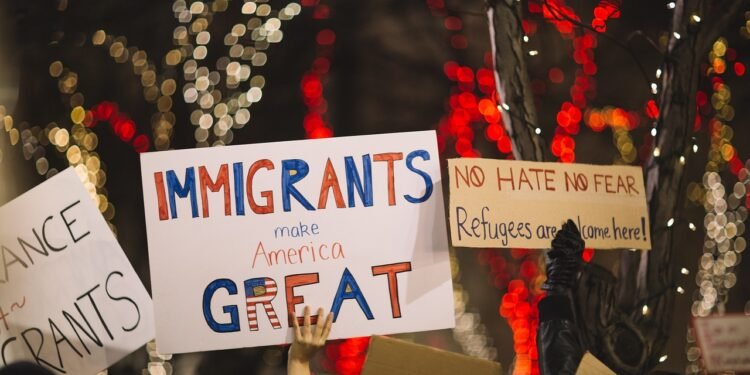 IMMIGRANTS
make
America
GREAT
NO HATE NO FEAR
Refugees are welcome here!
RANCE
GRANTS